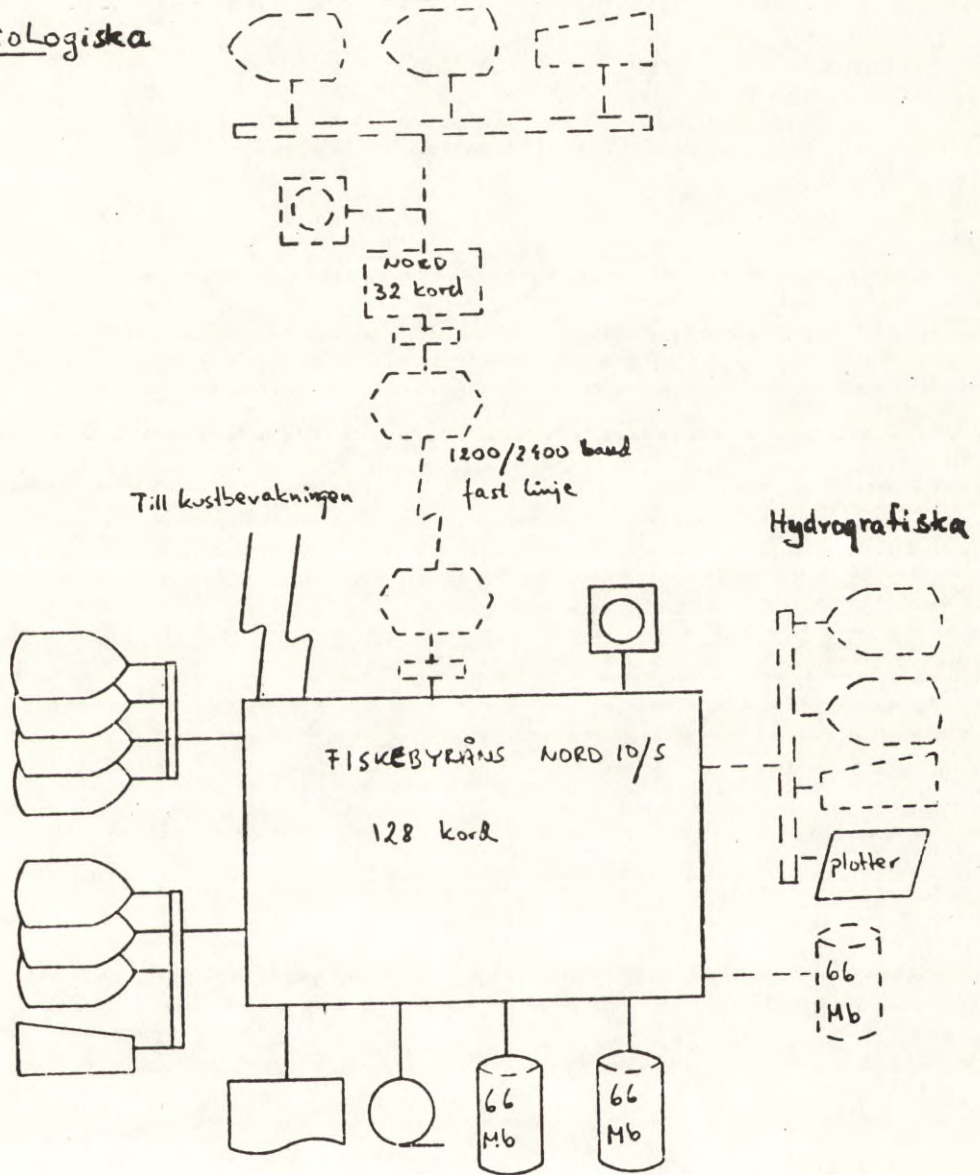 NORD
32 kord
1200/2400 baud
fast linje
Till kustbevakningen
Hydrografiska
FISKEBYRÅNS NORD 10/S
128 kord
plotter
66
Mb
66
Mb
66
Mb